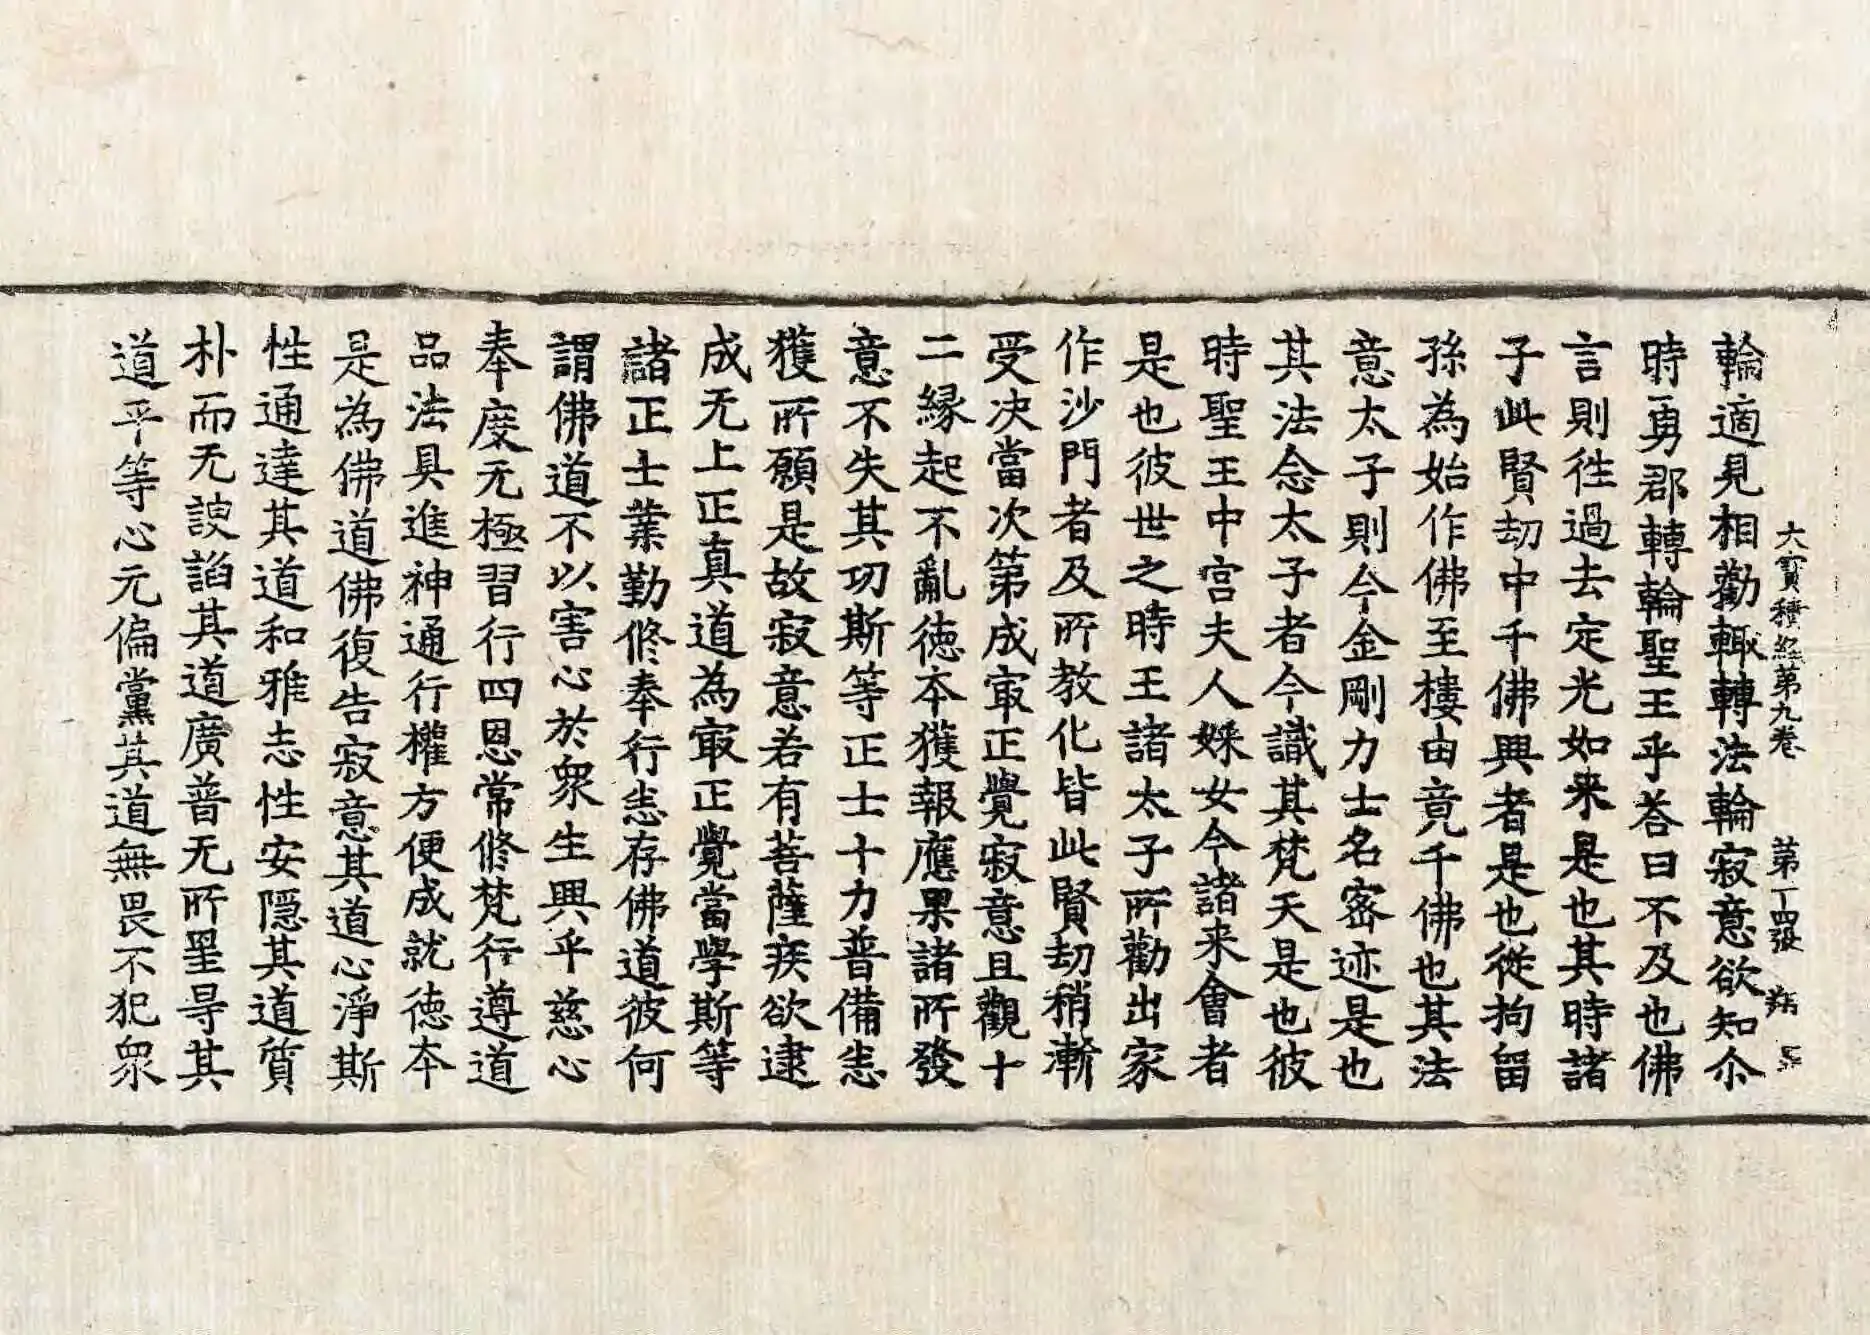 大寶積經第九卷 第丁四張
輪適見相勸輙轉法輪寂意欲知尒
時勇郡轉輪聖王乎荅曰不及也佛
言則往過去定光如来是也其時諸
子此賢劫中千佛興者是也從拘留
孫為始作佛至樓由竟千佛也其法
意太子則今金剛力士名密迹是也
其法念太子者今識其梵天是也彼
時聖王中宫夫人婇女今諸来會者
是也彼世之時王諸太子所勸出家
作沙門者及所教化皆此賢劫稍漸
受决當次第成㝡正覺寂意且觀十
二緣起不亂徳夲獲報應果諸所發
意不失其功斯等正士十力普備悉
獲所願是故寂意若有菩薩疾欲逮
成无上正真道為㝡正覺當學斯等
諸正士業勤修奉行悉存佛道彼何
謂佛道不以害心於衆生興乎慈心
奉度无極習行四恩常修梵行遵道
品法具進神通行權方便成就徳夲
是為佛道佛復告寂意其道心淨斯
性通達其道和雅志性安隠其道質
朴而无諛諂其道廣普无所罣㝵其
道平等心无偏黨其道無畏不犯衆